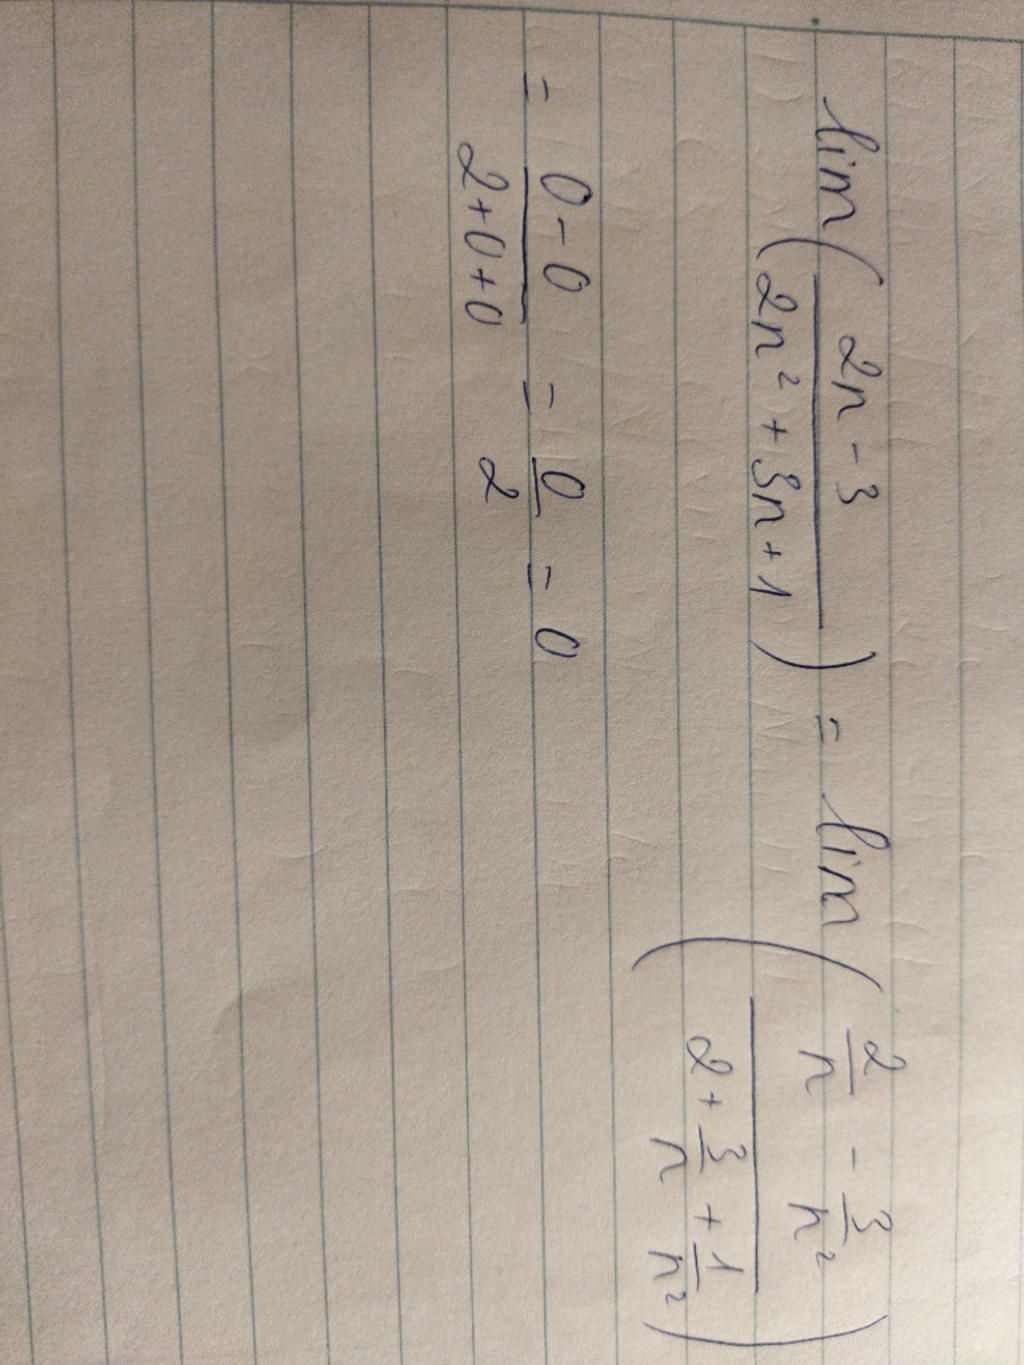 lim ( (2n - 3) / (2n² + 3n + 1) ) = lim ( (2/n - 3/n²) / (2 + 3/n + 1/n²) )
= (0 - 0) / (2 + 0 + 0) = 0/2 = 0